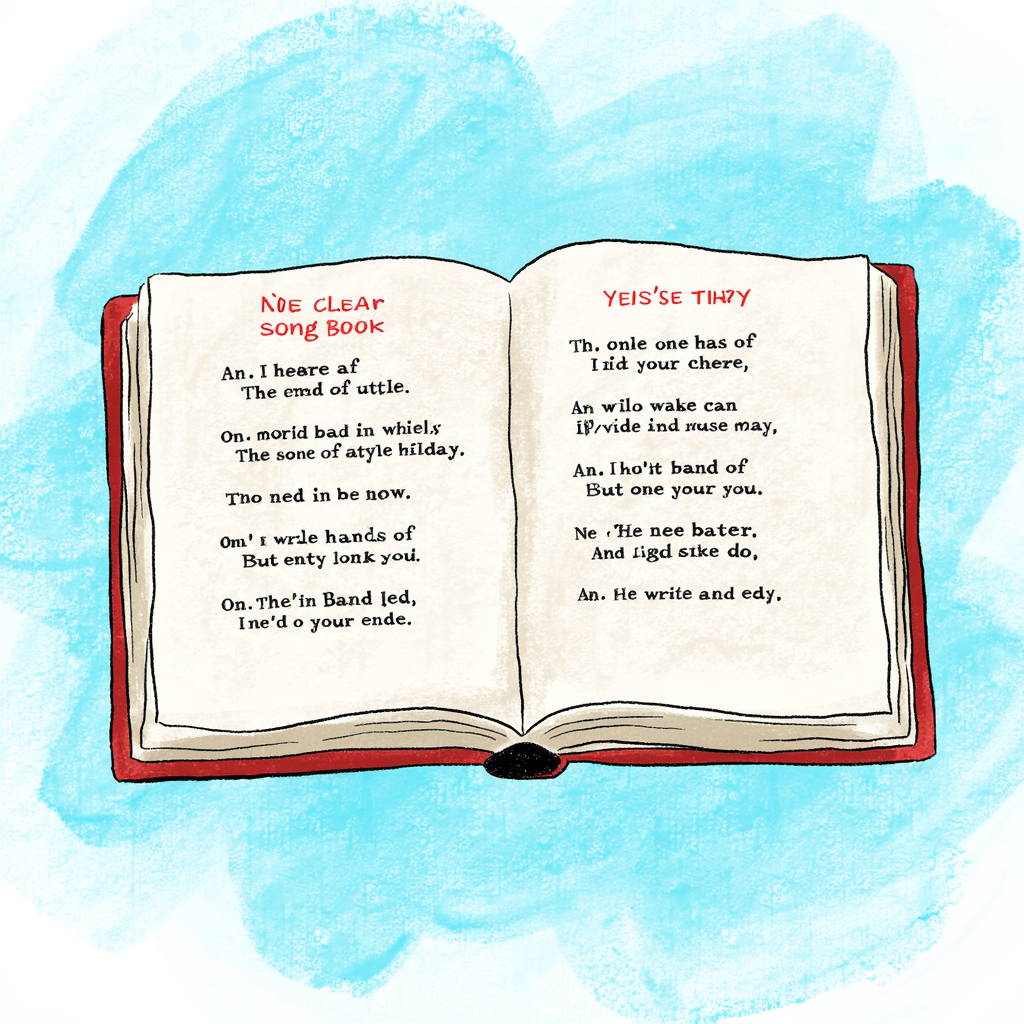 NOE CLEAR
SONG BOOK
An. I heare af
The emd of uttle.
On. morid bad in whiels
The sone of atyle hilday.
Tho ned in be now.
Om' I wrile hands of
But enty lonk you.
On. The'in Band led,
Ine'd o your ende.
YEIS'SE TIH?Y
Th. onle one has of
I rid your chere,
An wilo wake can
ind nuse may,
An. Iho'it band of
But one your you.
Ne 'He nee bater.
And ligd sike do,
An. He write and edy.